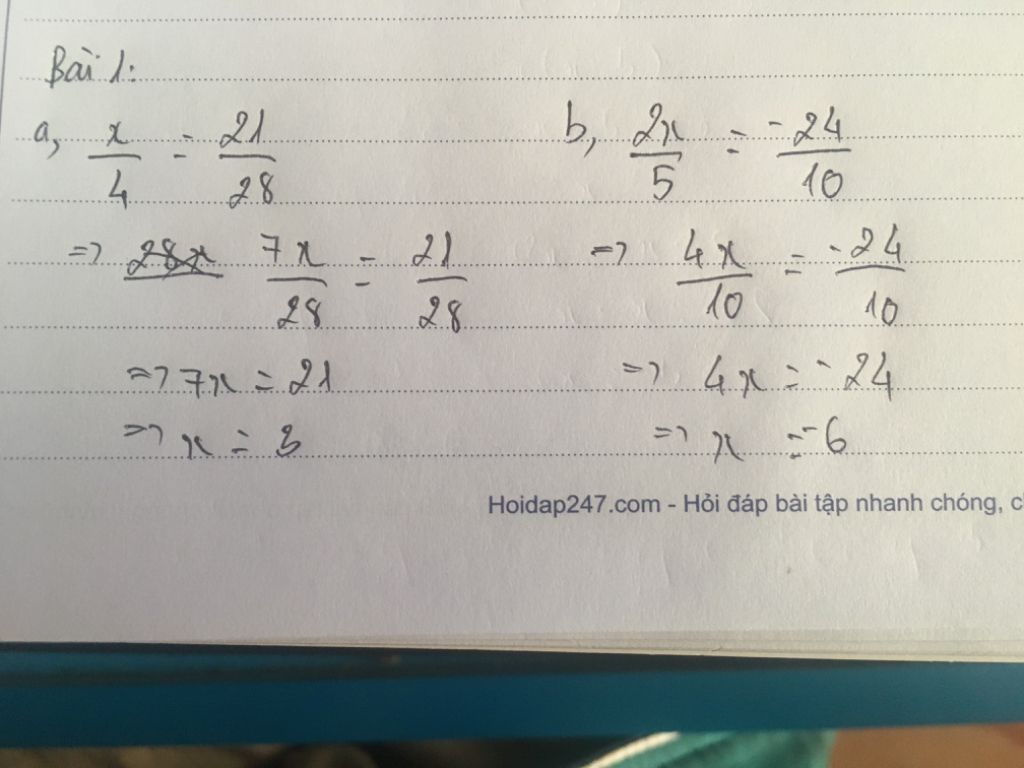 Bài 1:
a, x/4 = 21/28
=> 28x 7x/28 = 21/28
=> 7x = 21
=> x = 3
b, 2x/5 = -24/10
=> 4x/10 = -24/10
=> 4x = -24
=> x = -6
Hoidap247.com - Hỏi đáp bài tập nhanh chóng, c